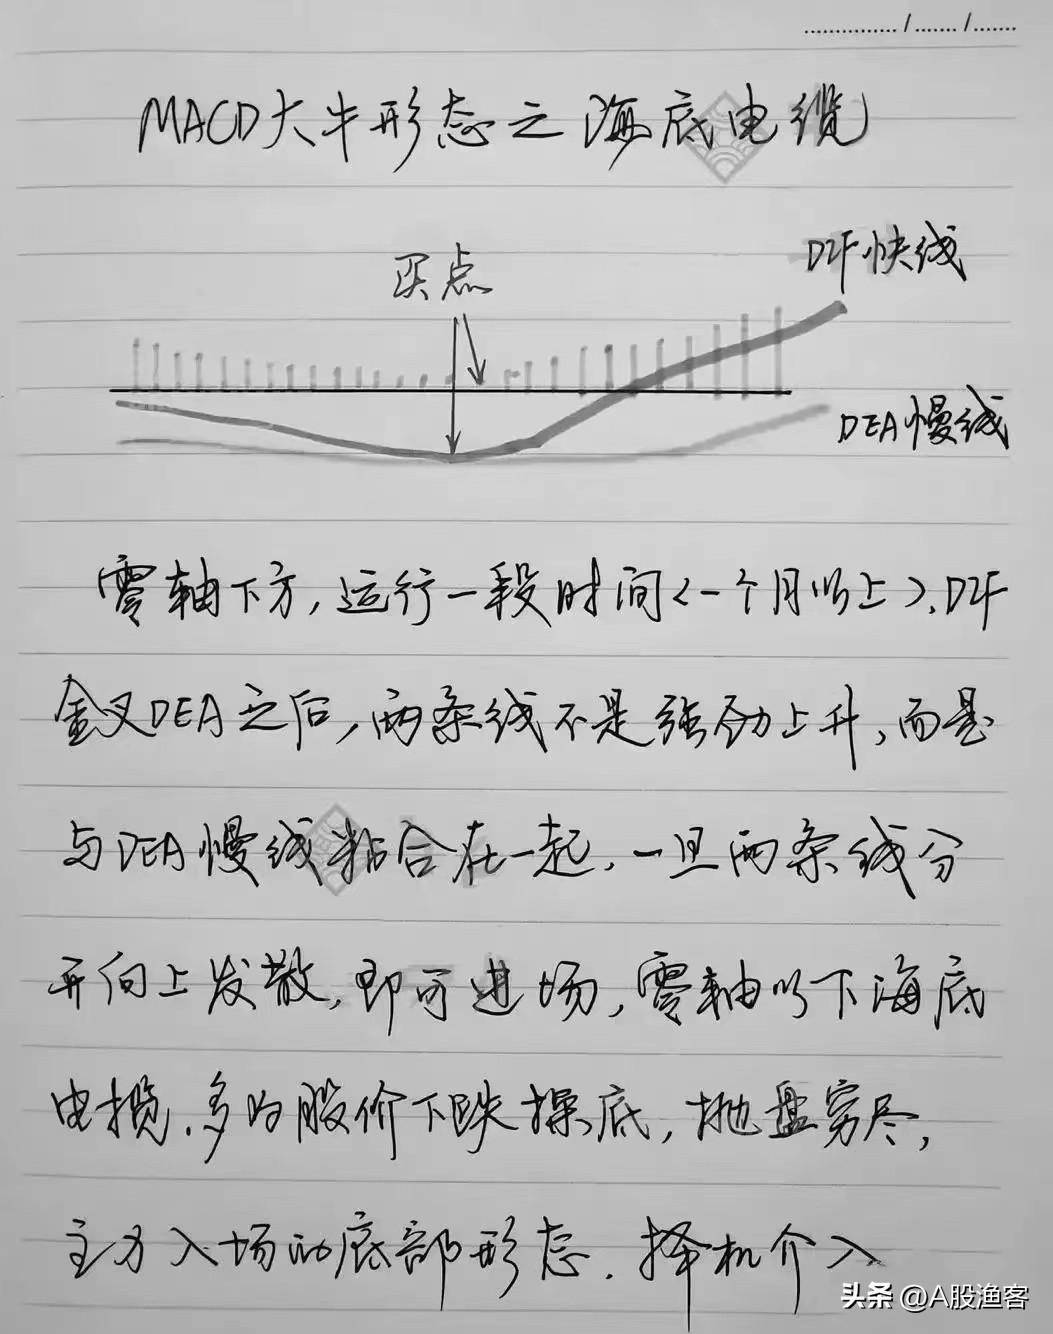 MACD大牛形态之海底电缆
买点
DIF快线
DEA慢线
零轴下方,运行一段时间<一个月以上>,DIF
金叉DEA之后,两条线不是强劲上升,而是
与DEA慢线粘合在一起,一旦两条线分
开向上发散,即可进场,零轴以下海底
电揽,多为股价下跌探底,抛盘穷尽,
主力入场的底部形态.择机介入
头条 @A股渔客